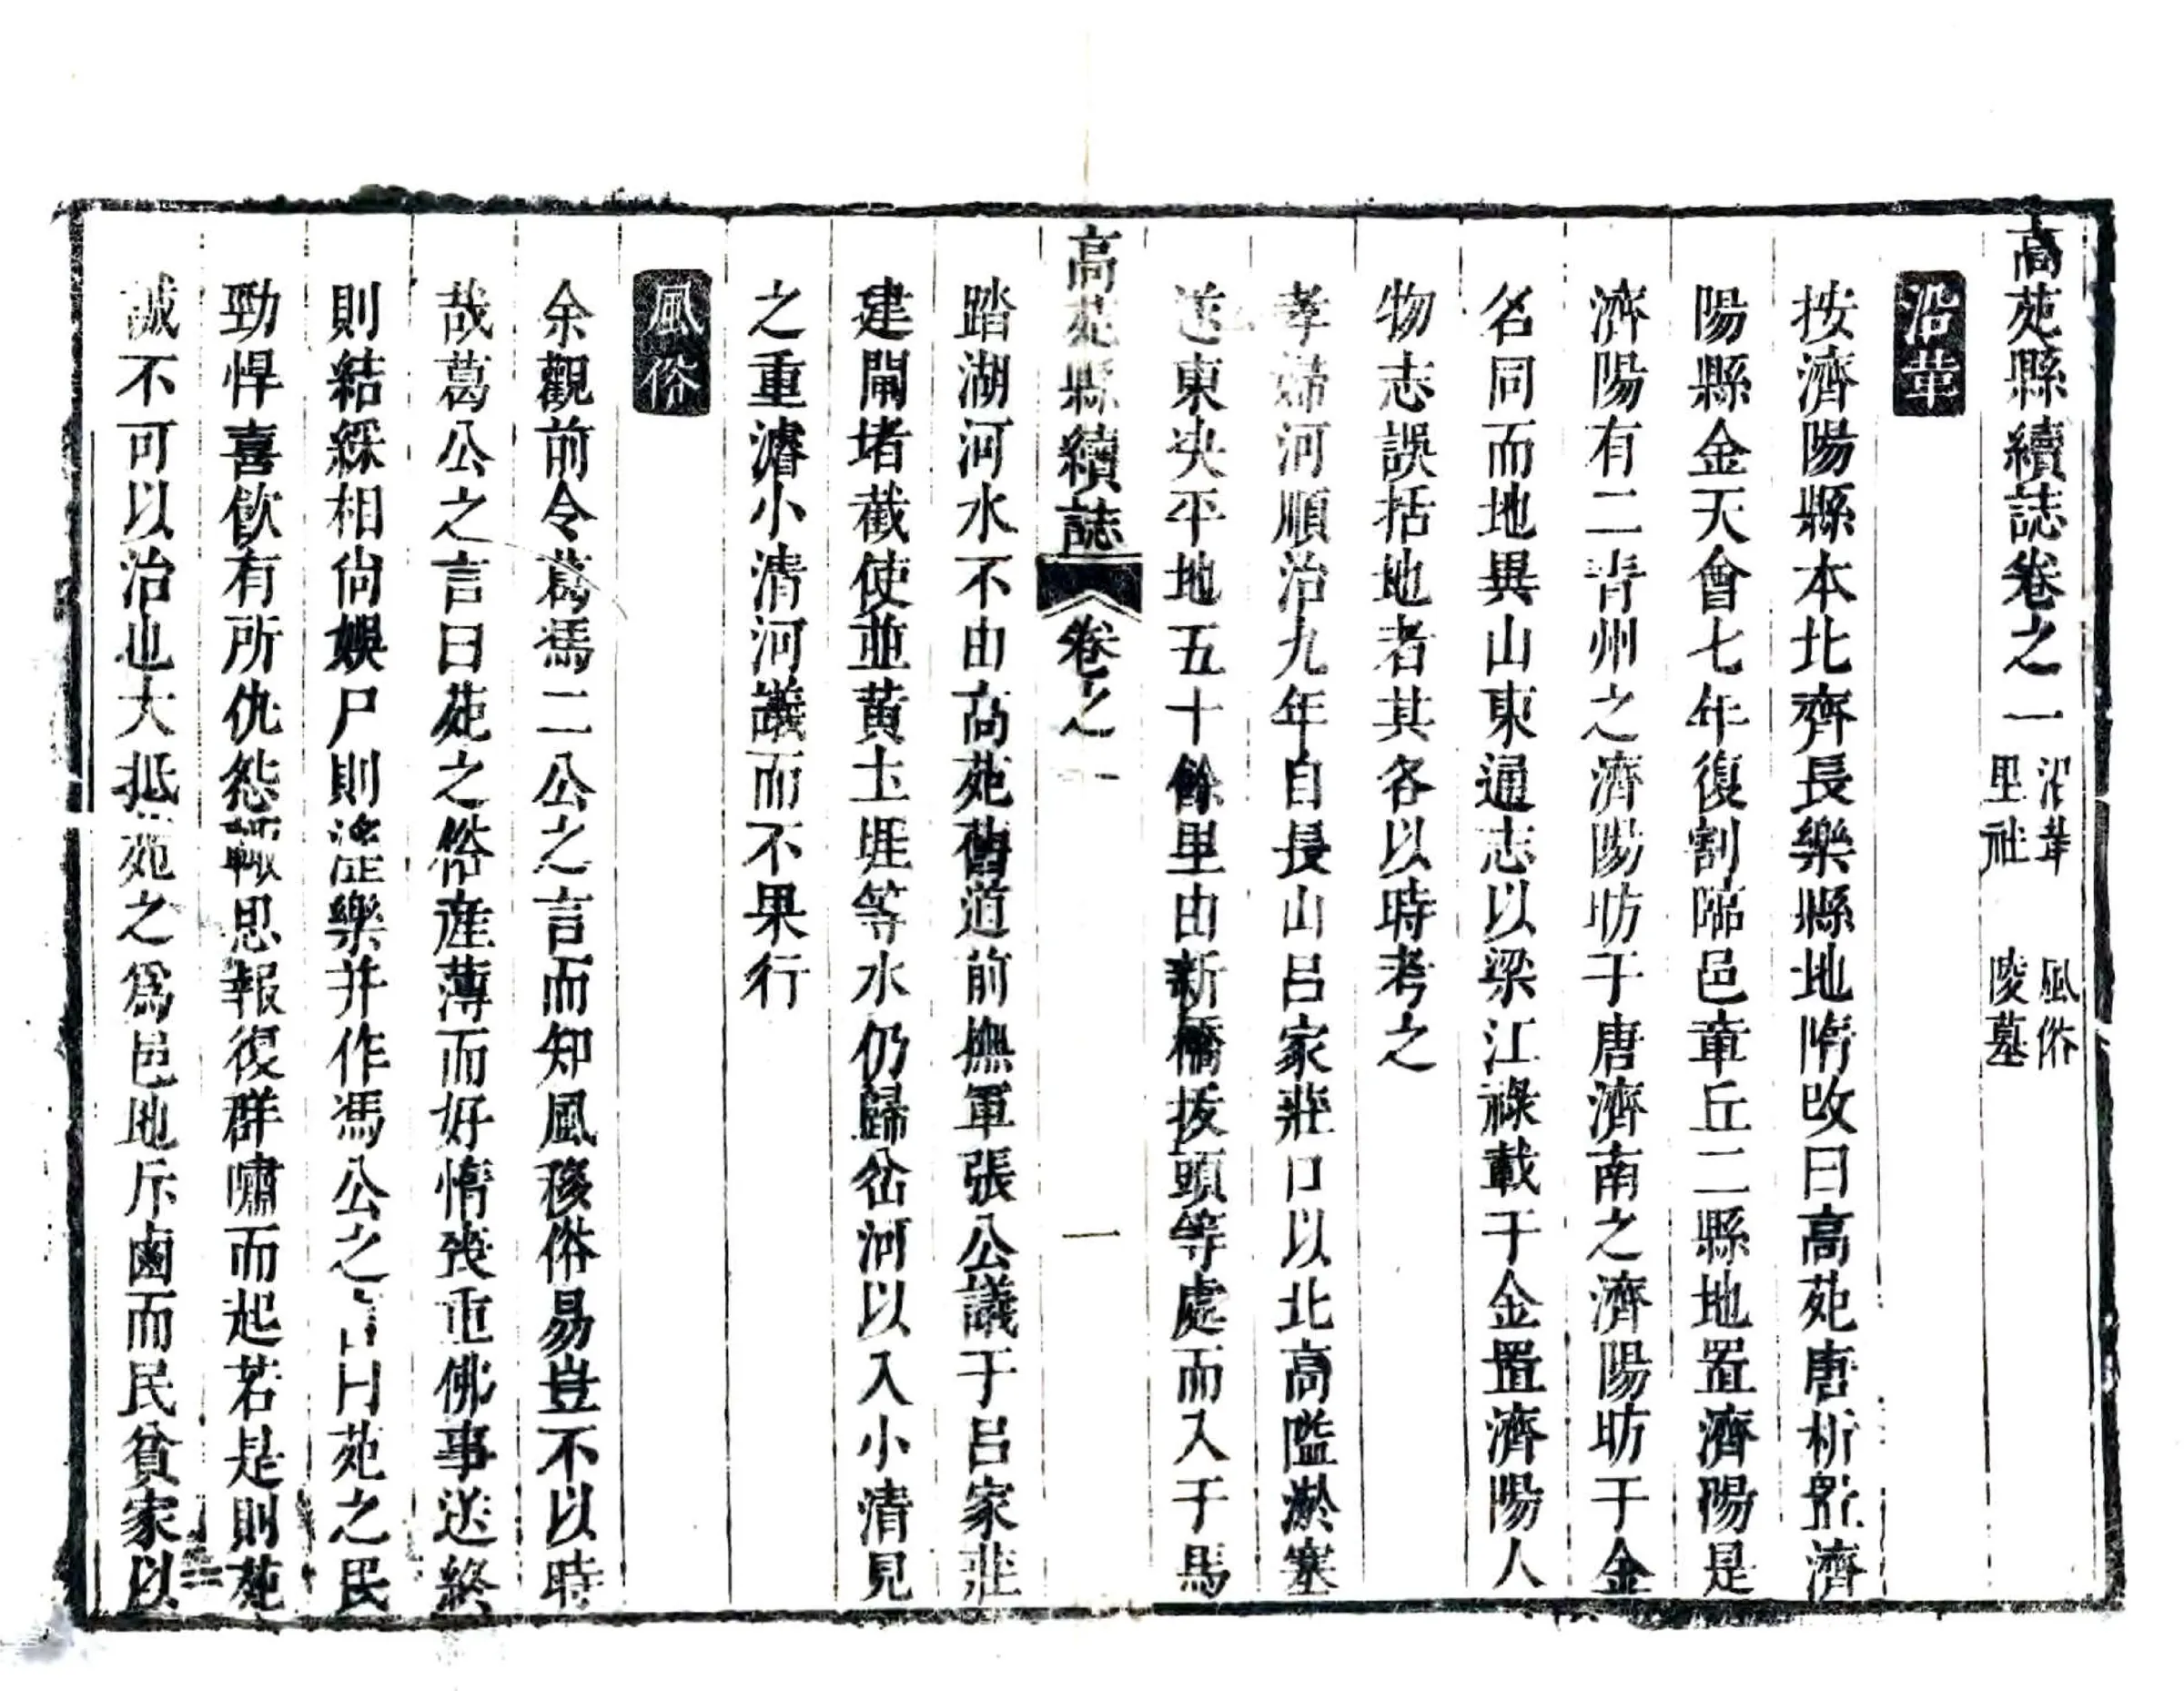 高苑縣續誌卷之一 沿革 風俗
里社 陵墓
沿革
按濟陽縣本北齊長樂縣地隋改曰高苑唐析置濟
陽縣金天會七年復割臨邑章丘二縣地置濟陽是
濟陽有二青州之濟陽昉于唐濟南之濟陽昉于金
名同而地異山東通志以梁江祿載于金置濟陽人
物志誤括地者其各以時考之
孝婦河順治九年自長山呂家莊口以北高隘淤塞
遂東決平地五十餘里由新橋拔頭等處而入于馬
高苑縣續誌 卷之一 一
踏湖河水不由高苑舊道前撫軍張公議于呂家莊
建閘堵截使並黃土堐等水仍歸岔河以入小清見
之重濬小清河議而不果行
風俗
余觀前令葛馮二公之言而知風移俗易豈不以時
哉葛公之言曰苑之俗産薄而好惰喪重佛事送終
則結綵相尚娛尸則淫樂并作馮公之言曰苑之民
勁悍喜飲有所仇怨輒思報復群嘯而起若是則苑
誠不可以治也大抵苑之爲邑地斥鹵而民貧家以